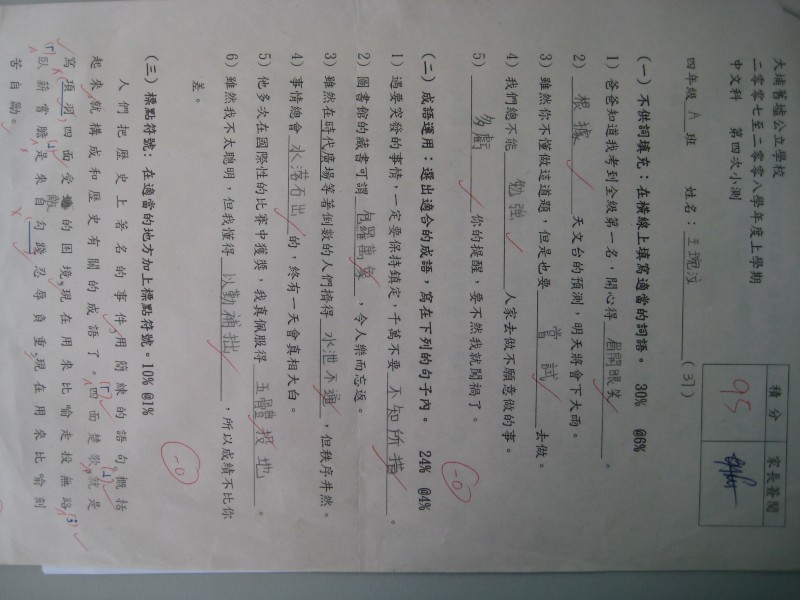 大埔舊墟公立學校
二零零七至二零零八學年度上學期
中文科 第四次小測
積分 家長簽閱
95
四年級 A 班 姓名: 王琬汶 (31)
(一) 不供詞填充:在橫線上填寫適當的詞語。 30% @6%
1) 爸爸知道我考到全級第一名,開心得 眉開眼笑 。
2) 根據 天文台的預測,明天將會下大雨。
3) 雖然你不懂做這道題,但是也要 嘗試 去做。
4) 我們總不能 勉強 人家去做不願意做的事。
5) 多虧 你的提醒,要不然我就闖禍了。
-0
(二) 成語運用:選出適合的成語,寫在下列的句子內。 24% @4%
1) 遇要突發的事情,一定要保持鎮定,千萬不要 不知所措 。
2) 圖書館的藏書可謂 包羅萬象 ,令人樂而忘返。
3) 雖然在時代廣場等著倒數的人們擠得 水泄不通 ,但秩序井然。
4) 事情總會 水落石出 的,終有一天會真相大白。
5) 他多次在國際性的比賽中獲獎,我真佩服得 五體投地 。
6) 雖然我不太聰明,但我懂得 以勤補拙 ,所以成績不比你
差。
-0
(三) 標點符號:在適當的地方加上標點符號。10% @1%
人們把歷史上著名的事件,用簡練的語句概括
起來,就構成和歷史有關的成語了。「四面楚歌」就是
寫項羽四面受敵的困境,現在用來比喻走投無路;
「臥薪嘗膽」是來自勾踐忍辱負重,現在用來比喻刻
苦自勵。